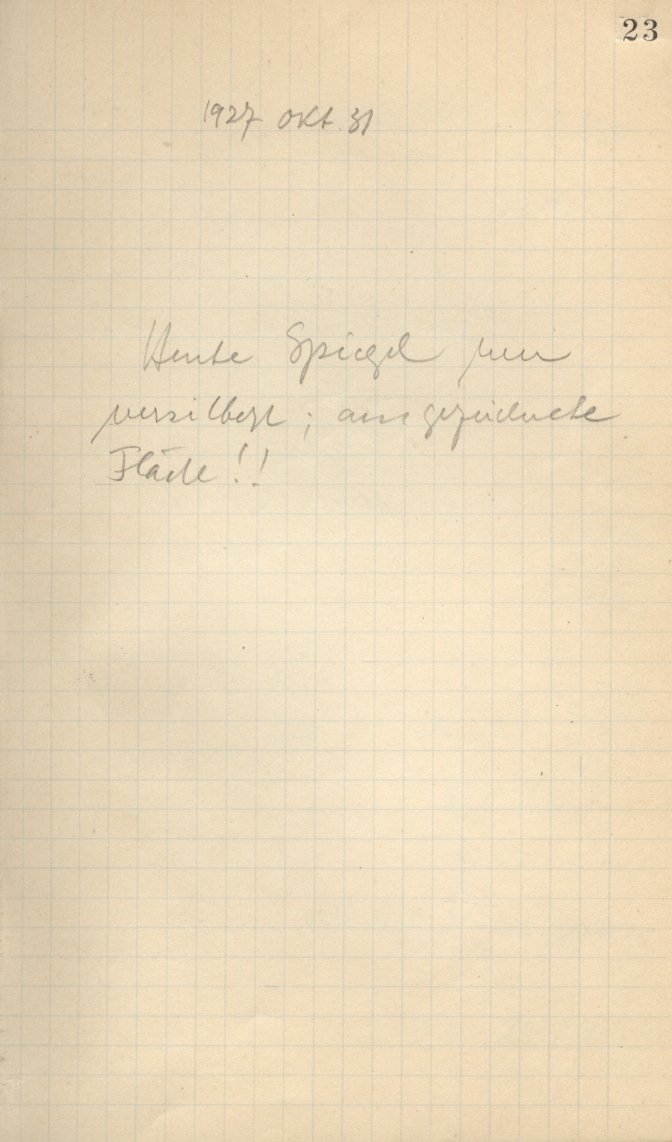 23
1927 Okt 31
Heute Spiegel neu
versilbert; ausgezeichnete
Fläche!!